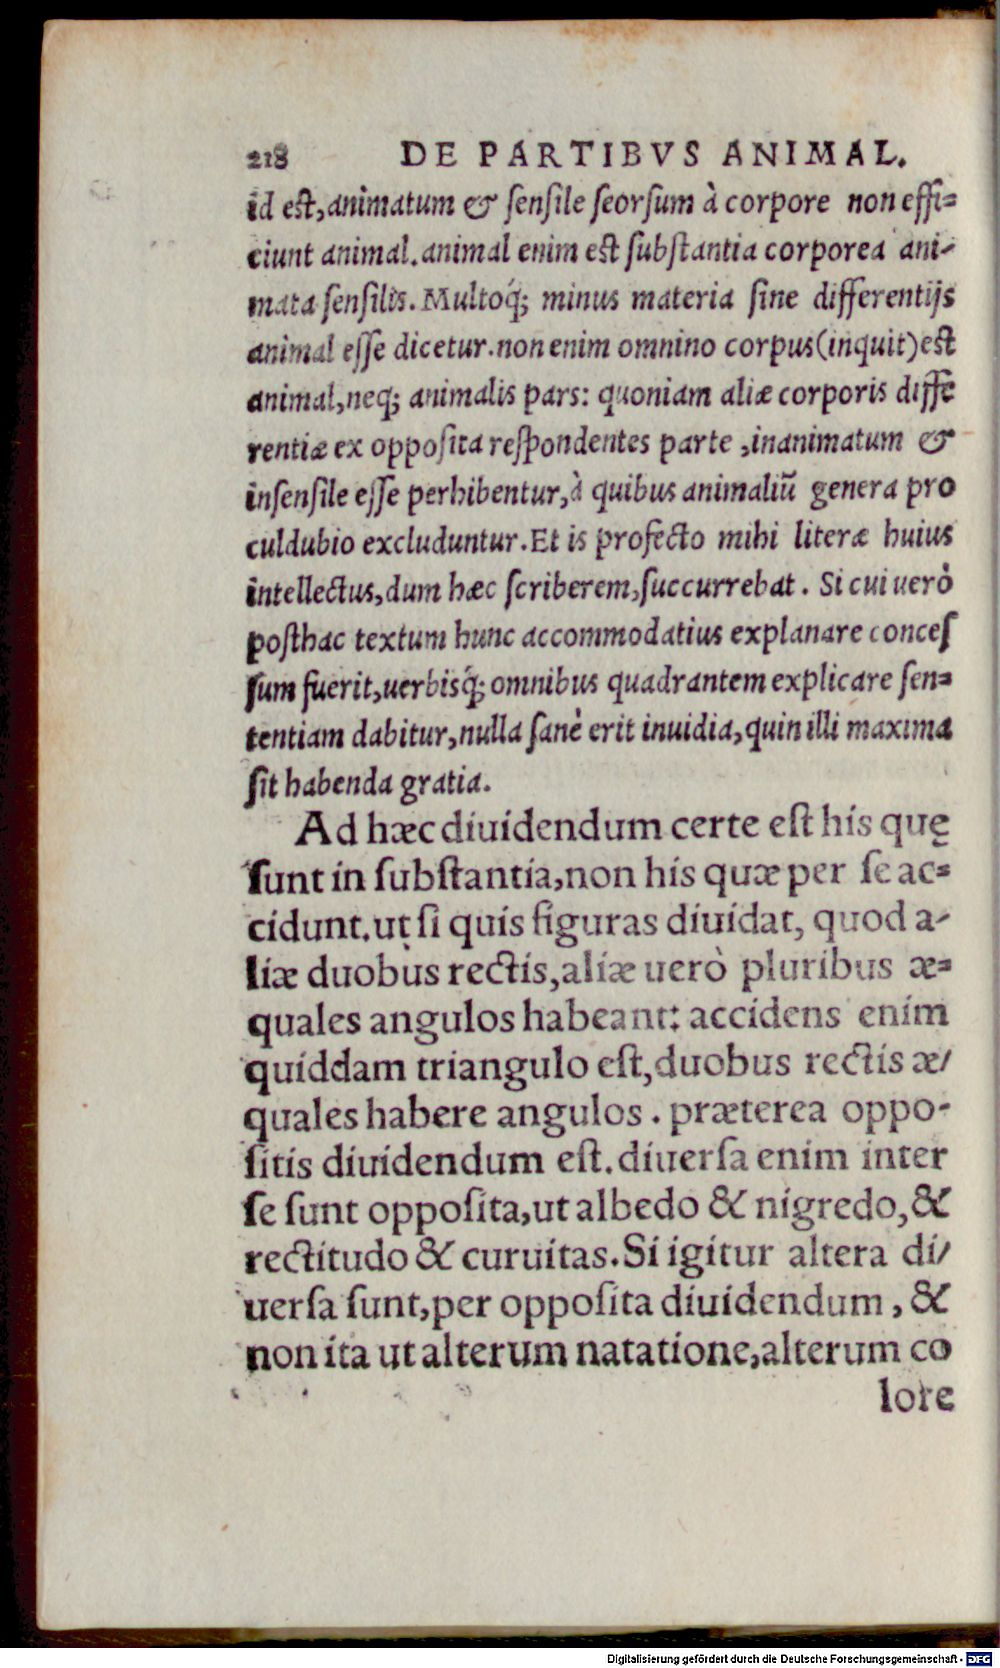 218 DE PARTIBVS ANIMAL.
id est, animatum & ſenſile ſeorſum à corpore non effi=
ciunt animal. animal enim est ſubſtantia corporea ani-
mata ſenſilis. Multoq́; minus materia ſine differentijs
animal eſſe dicetur. non enim omnino corpus (inquit) est
animal, neq; animalis pars: quoniam aliæ corporis diffe
rentiæ ex oppoſita reſpondentes parte, inanimatum &
inſenſile eſſe perhibentur, à quibus animaliũ genera pro
culdubio excluduntur. Et is profecto mihi literæ huius
intellectus, dum hæc ſcriberem, ſuccurrebat. Si cui uerò
poſthac textum hunc accommodatius explanare conceſ
ſum fuerit, uerbisq́; omnibus quadrantem explicare ſen=
tentiam dabitur, nulla ſanè erit inuidia, quin illi maxima
ſit habenda gratia.
Ad hæc diuidendum certe eſt his quę
ſunt in ſubſtantia, non his quæ per ſe ac=
cidunt. ut ſi quis figuras diuidat, quod a-
liæ duobus rectis, aliæ uerò pluribus æ=
quales angulos habeant: accidens enim
quiddam triangulo eſt, duobus rectis æ/
quales habere angulos. præterea oppo-
ſitis diuidendum eſt. diuerſa enim inter
ſe ſunt oppoſita, ut albedo & nigredo, &
rectitudo & curuitas. Si igitur altera di/
uerſa ſunt, per oppoſita diuidendum, &
non ita ut alterum natatione, alterum co
lore
Digitalisierung gefördert durch die Deutsche Forschungsgemeinschaft - DFG